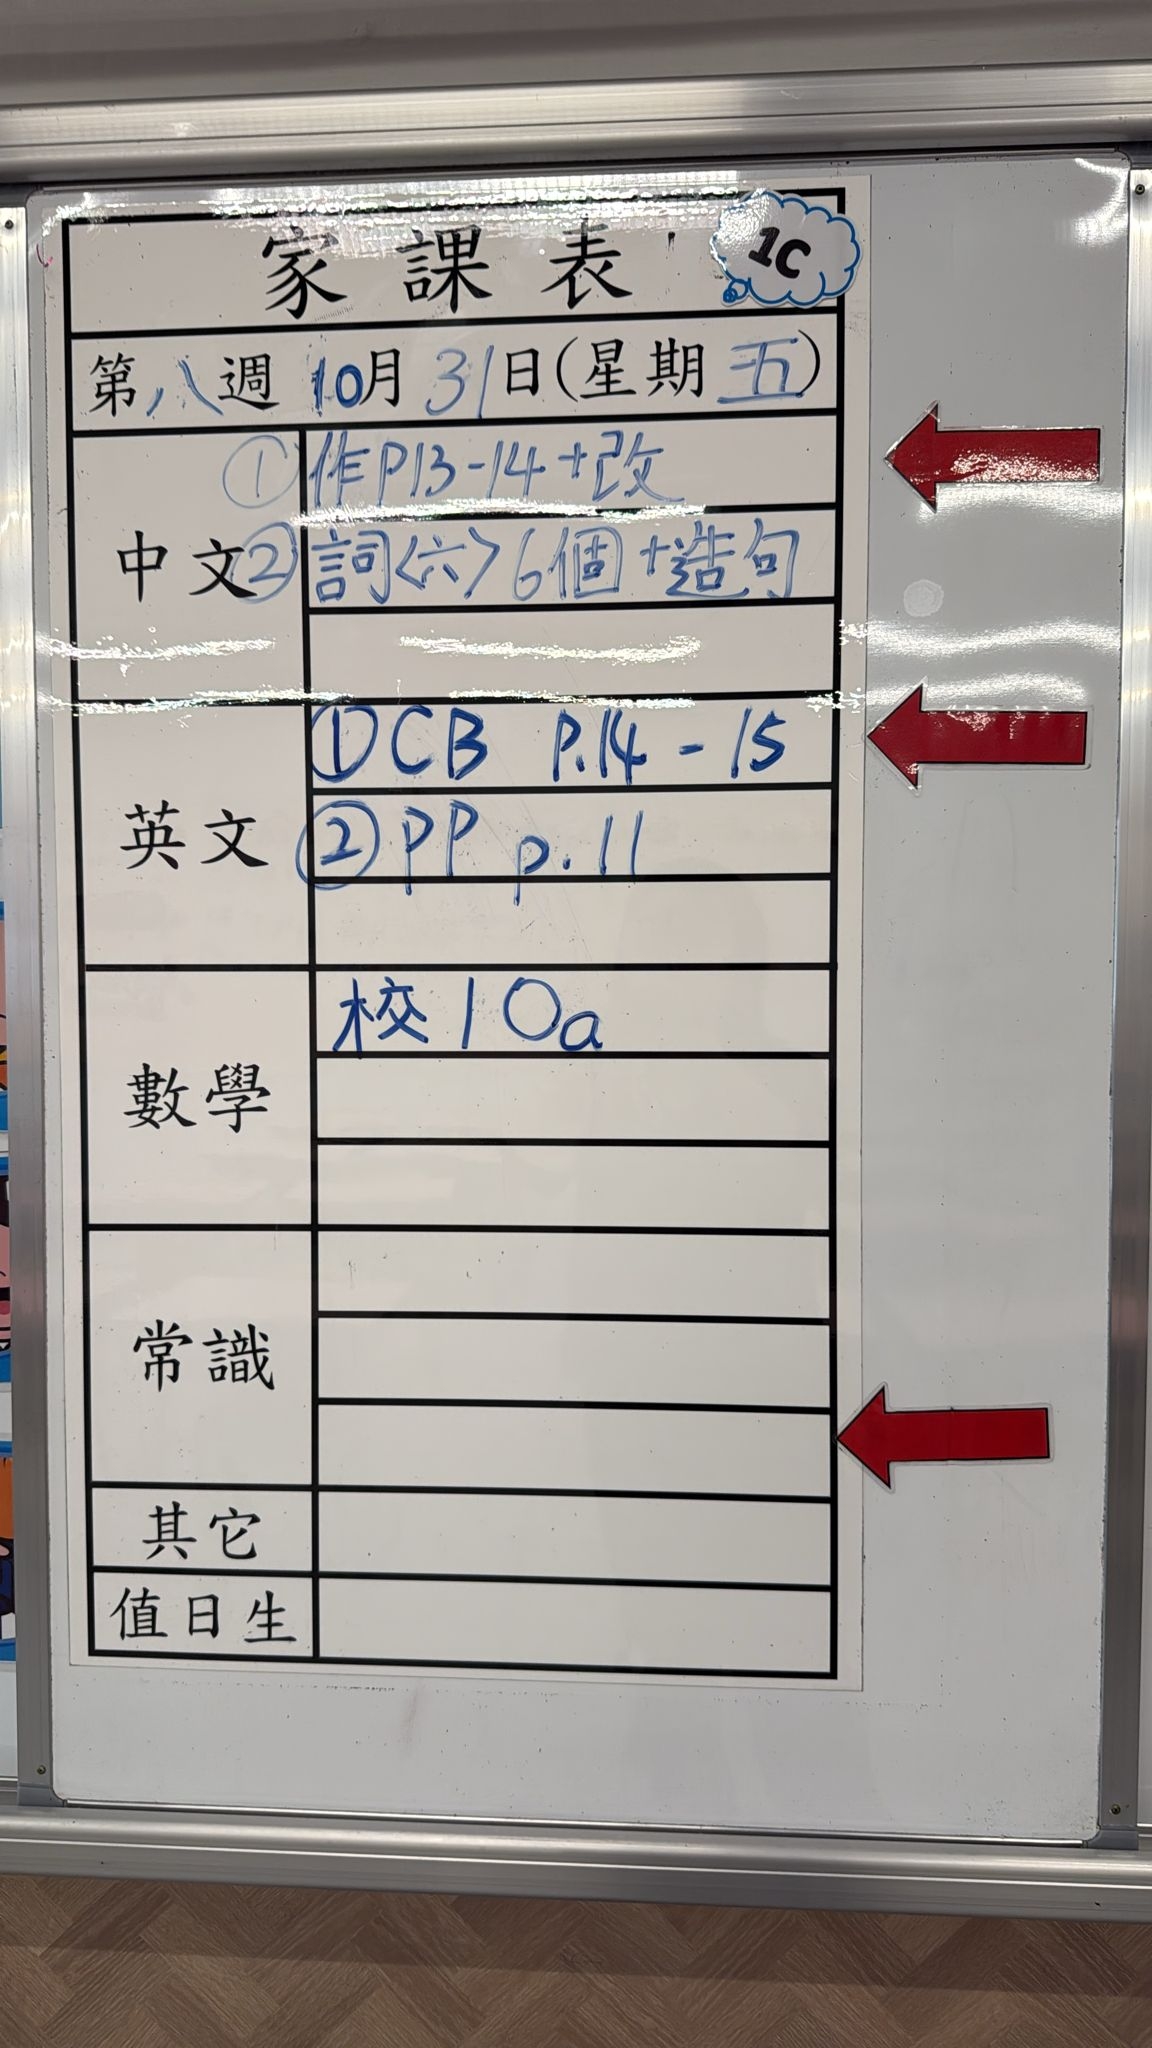 家課表
1C
第八週 10月31日(星期五)
中文
①作P13-14+改
②詞<六>6個+造句
英文
①CB P.14-15
②PP p.11
數學
校10a
常識
其它
值日生